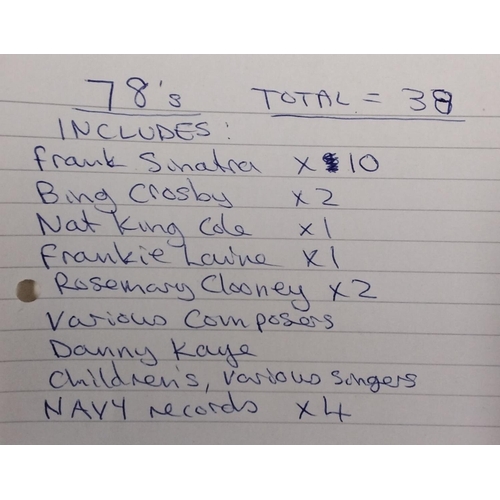 78's TOTAL = 38
INCLUDES:
Frank Sinatra x 10
Bing Crosby x 2
Nat King Cole x 1
Frankie Laine x 1
Rosemary Clooney x 2
Various Composers
Danny Kaye
Children's, various singers
NAVY records x 4